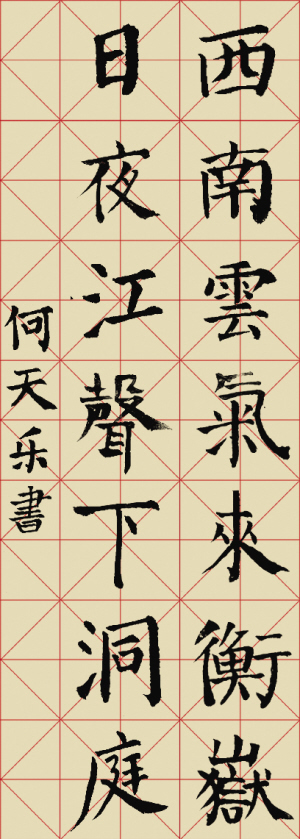 西南雲氣來衡嶽
日夜江聲下洞庭
何天乐書